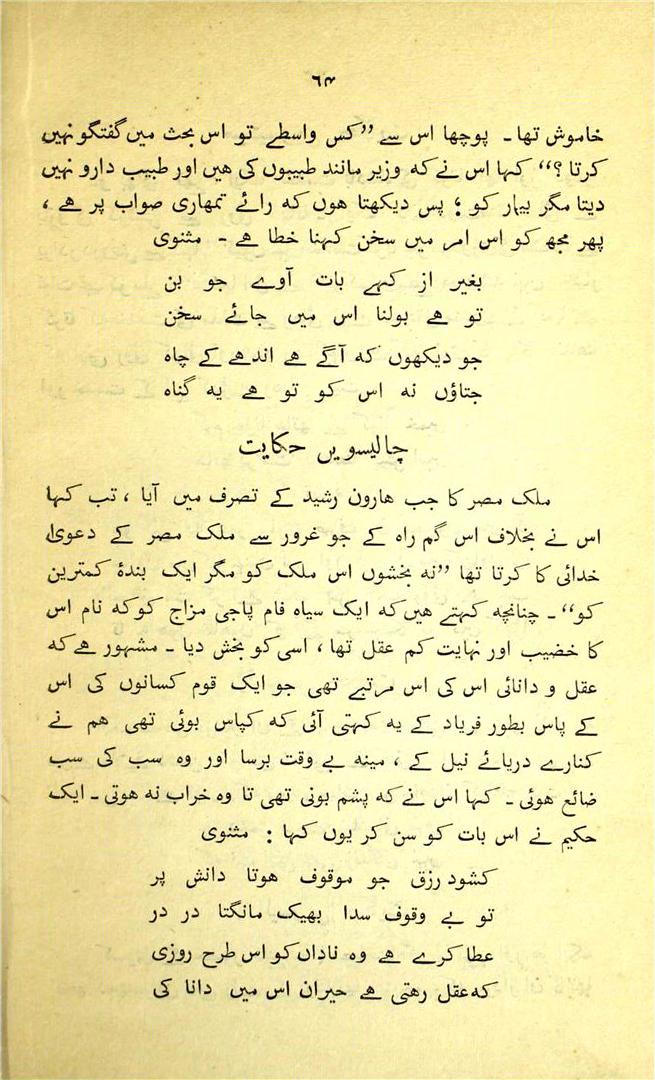 ۶۴
خاموش تھا ۔ پوچھا اس سے ”کس واسطے تو اس بحث میں گفتگو نہیں
کرتا ؟“ کہا اس نے کہ وزیر مانند طبیبوں کی ھیں اور طبیب دارو نہیں
دیتا مگر بیمار کو ؛ پس دیکھتا ھوں کہ رائے تمھاری صواب پر ھے ،
پھر مجھ کو اس امر میں سخن کہنا خطا ھے ۔ مثنوی
بغیر از کہے بات آوے جو بن
تو ھے بولنا اس میں جائے سخن
جو دیکھوں کہ آگے ھے اندھے کے چاہ
جتاؤں نہ اس کو تو ھے یہ گناہ
چالیسویں حکایت
ملک مصر کا جب ھارون رشید کے تصرف میں آیا ، تب کہا
اس نے بخلاف اس گم راہ کے جو غرور سے ملک مصر کے دعویٰ
خدائی کا کرتا تھا ”نہ بخشوں اس ملک کو مگر ایک بندۂ کمترین
کو“ ۔ چنانچہ کہتے ھیں کہ ایک سیاہ فام پاجی مزاج کو کہ نام اس
کا خضیب اور نہایت کم عقل تھا ، اسی کو بخش دیا ۔ مشہور ھے کہ
عقل و دانائی اس کی اس مرتبے تھی جو ایک قوم کسانوں کی اس
کے پاس بطور فریاد کے یہ کہتی آئی کہ کپاس بوئی تھی ھم نے
کنارے دریائے نیل کے ، مینہ بے وقت برسا اور وہ سب کی سب
ضائع ھوئی ۔ کہا اس نے کہ پشم بونی تھی تا وہ خراب نہ ھوتی ۔ ایک
حکیم نے اس بات کو سن کر یوں کہا : مثنوی
کشود رزق جو موقوف ھوتا دانش پر
تو بے وقوف سدا بھیک مانگتا در در
عطا کرے ھے وہ ناداں کو اس طرح روزی
کہ عقل رھتی ھے حیران اس میں دانا کی